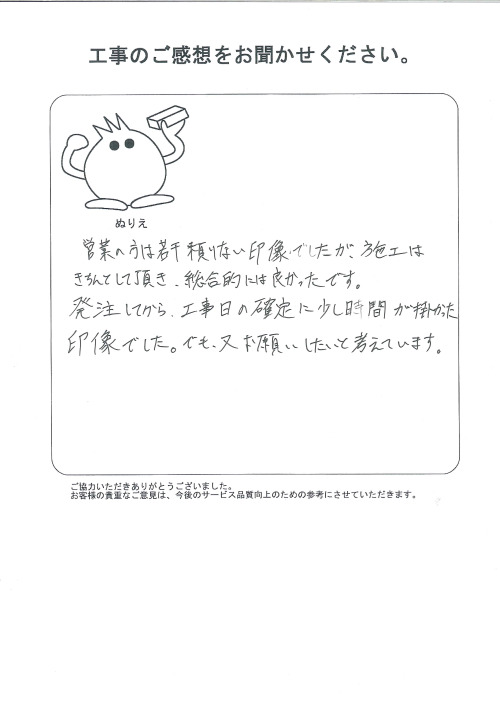 工事のご感想をお聞かせください。
ぬりえ
営業の方は若干頼りない印象でしたが、施工は
きちんとして頂き、総合的には良かったです。
発注してから、工事日の確定に少し時間が掛かった
印象でした。でも、又お願いしたいと考えています。
ご協力いただきありがとうございました。
お客様の貴重なご意見は、今後のサービス品質向上のための参考にさせていただきます。